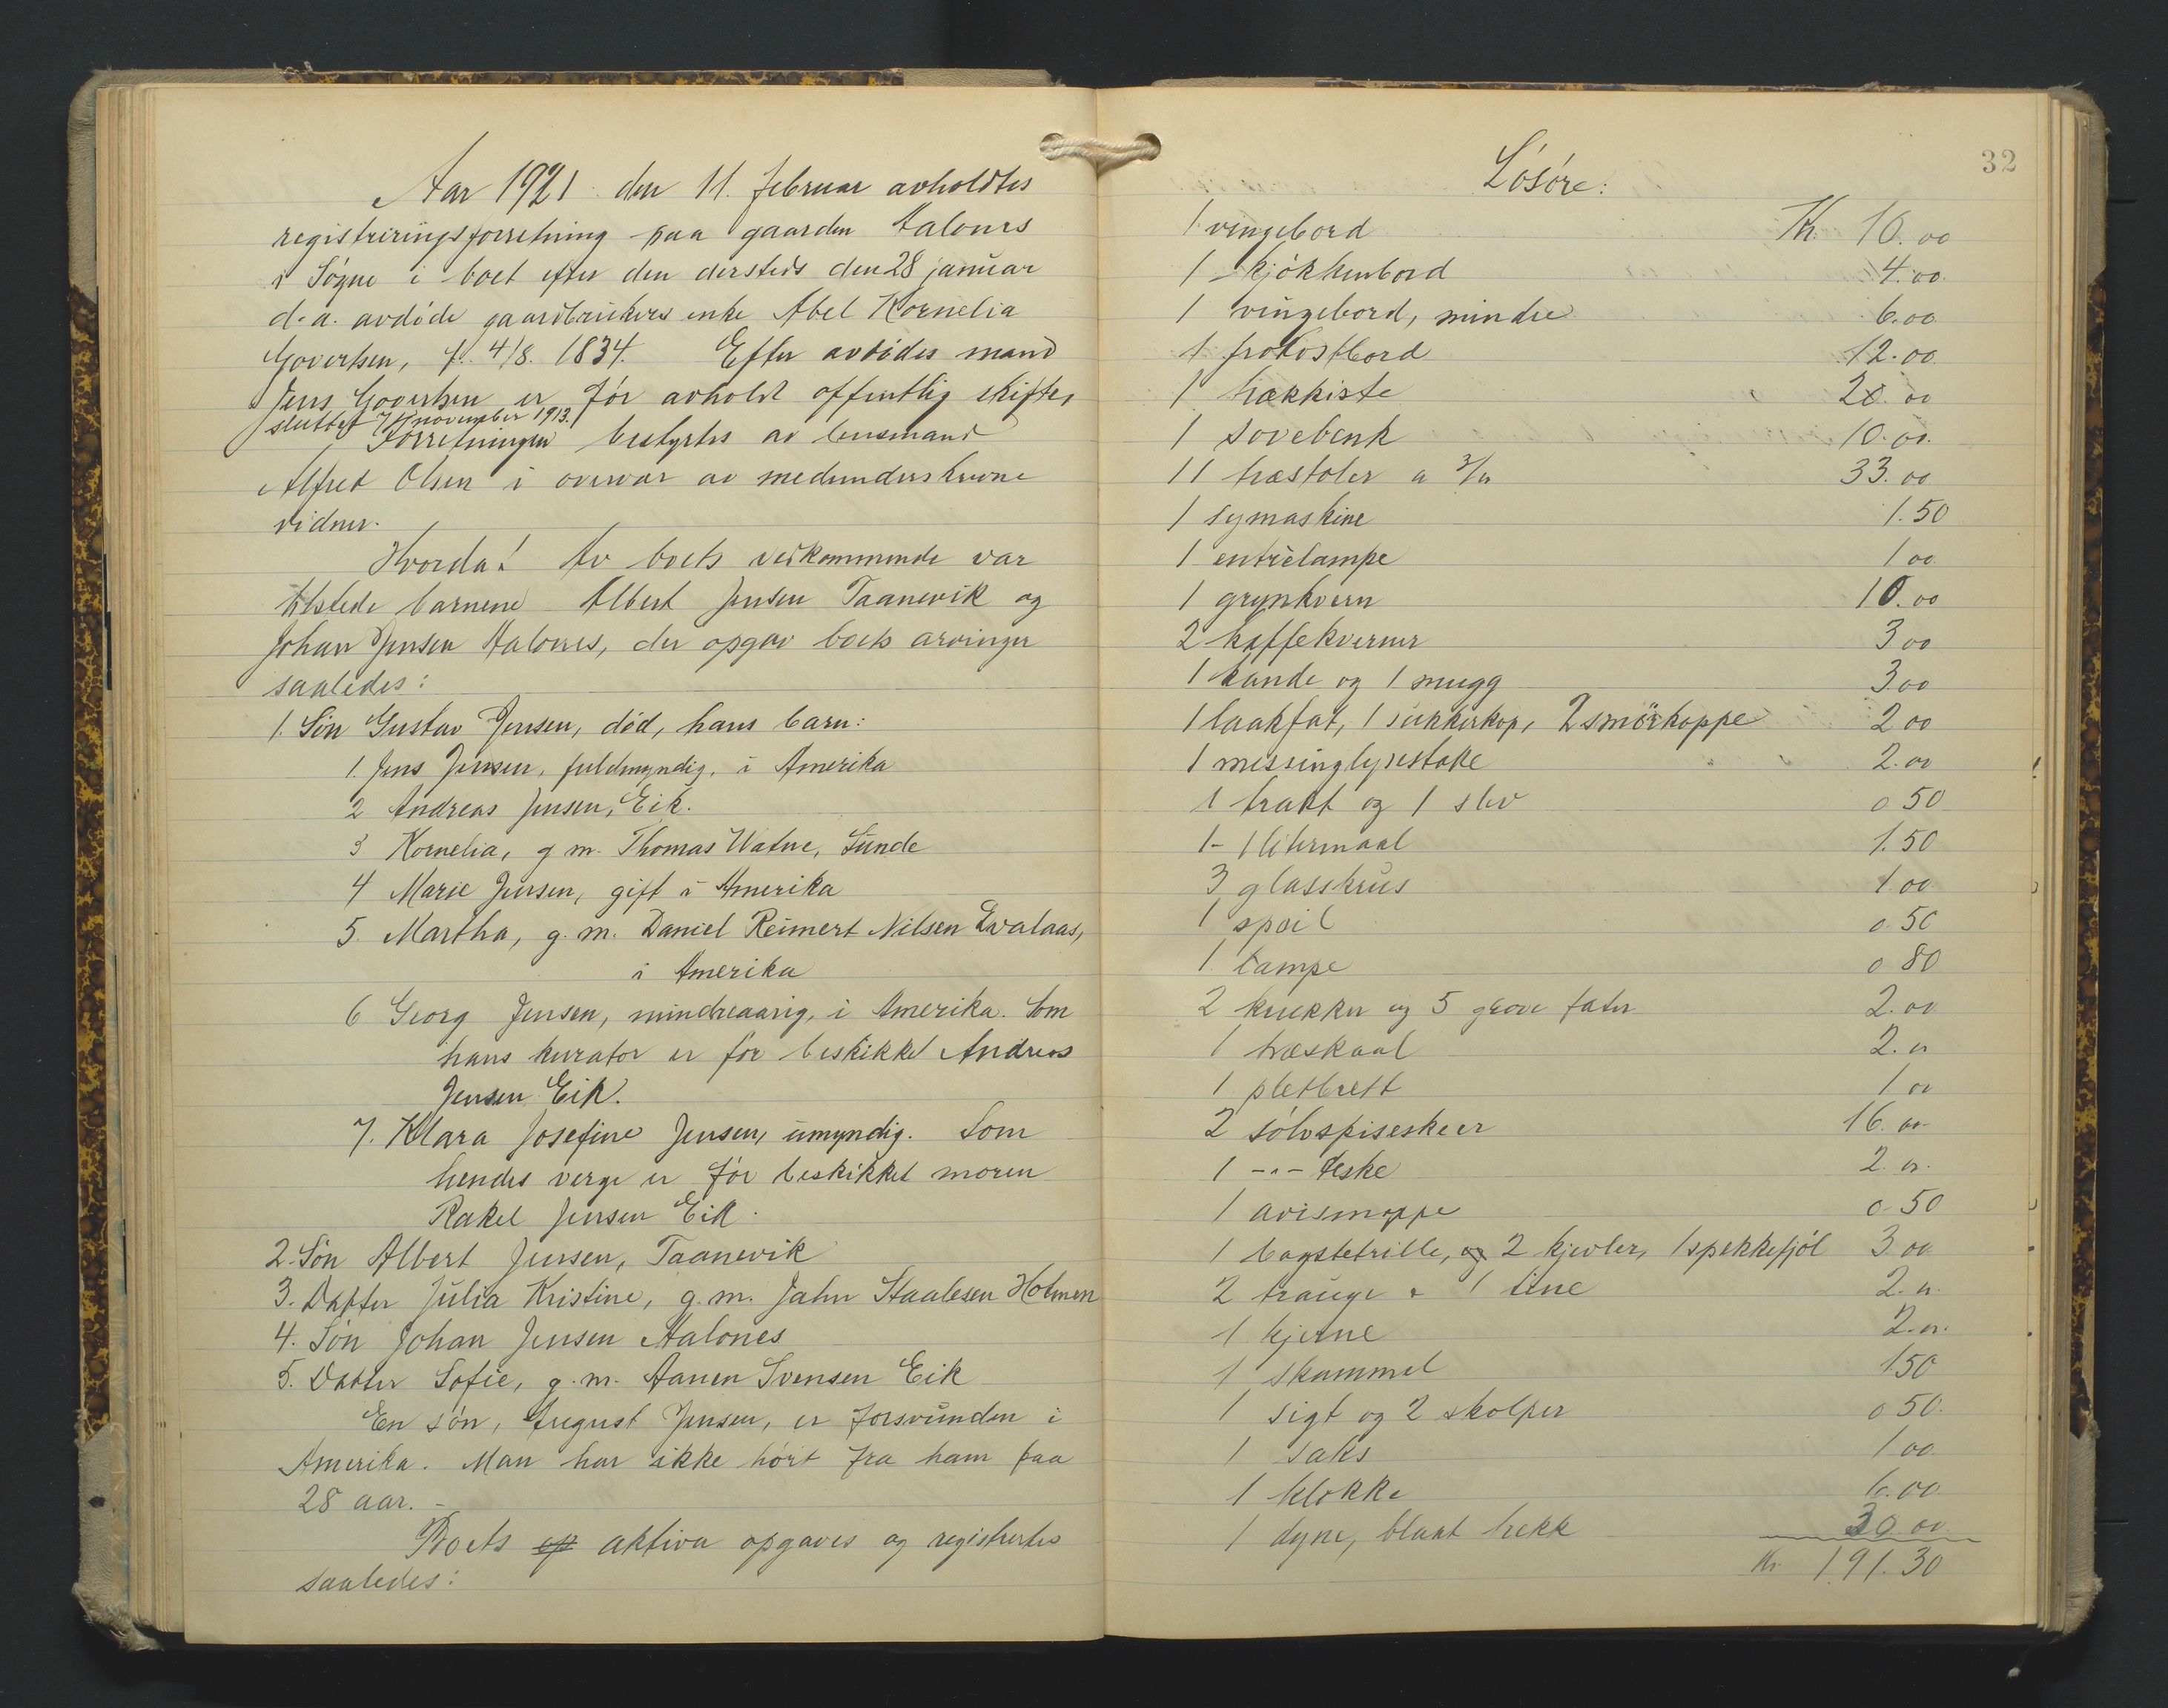 Aar 1921 den 11. februar avholdtes
registreringsforretning paa gaarden Aalones
i Søgne i boet efter den dersteds den 28 januar
d. a. avdøde gaardbrukers enke Abel Kornelia
Govertsen, f. 4/8. 1834. Efter avdødes mand
Jens Govertsen er før avholdt offentlig skifte,
sluttet 7 november 1913.
Forretningen bestyrtes av lensmand
Alfred Olsen i overvær av medunderskrevne
vidner.
Hvorda! Av boets vedkommende var
tilstede barnene Albert Jensen Taanevik og
Johan Jensen Aalones, der opgav boets arvinger
saaledes:
1. Søn Gustav Jensen, død, hans barn:
1. Jens Jensen, fuldmyndig, i Amerika
2 Andreas Jensen, Eik.
3 Kornelia, g m. Thomas Watne, Sunde
4 Marie Jensen, gift i Amerika
5. Martha, g. m. Daniel Reimert Nilsen Kvalaas,
i Amerika
6 Georg Jensen, mindreaarig, i Amerika. Som
hans kurator er før beskikket Andreas
Jensen Eik.
7. Klara Josefine Jensen, umyndig. Som
hendes verge er før beskikket moren
Rakel Jensen Eik.
2. Søn Albert Jensen, Taanevik
3. Datter Julia Kristine, g. m. Jahn Staalesen Holmen
4. Søn Johan Jensen Aalones
5. Datter Sofie, g. m. Aanen Svensen Eik
En søn, August Jensen, er forsvunden i
Amerika. Man har ikke hørt fra ham paa
28 aar. -
Boets op aktiva opgaves og registrertes
saaledes:
32
Løsøre:
1 vingebord Kr. 10.00
1 kjøkkenbord 4.00
1 vingebord, mindre 6.00
1 frokostbord 12.00
1 trækkiste 20.00
1 sovebenk 10.00
11 træstoler a 3/00 33.00
1 symaskine 1.50
1 entrélampe 1 00
1 grynkvern 10.00
2 kaffekverner 3 00
1 kande og 1 mugg 3 00
1 laakfat, 1 sukkerkop, 2 smörkoppe 2 00
1 messinglysestake 2.00
1 trakt og 1 slev 0 50
1 - 1 litermaal 1.50
3 glasskrus 1 00
1 speil 0 50
1 lampe 0 80
2 krukker og 5 grove fater 2.00
1 træskaal 2.00
1 pletbrett 1 00
2 sølvspiseskeer 16.00
1 -"- teske 2.00
1 avismappe 0.50
1 bagstetrille, og 2 kjevler, 1 spekkefjøl 3 00
2 trauge & 1 tine 2.00
1 kjerne 2.00
1 skammel 1.50
1 sigt og 2 skolper 0 50
1 saks 1 00
1 klokke 6.00
1 dyne, blaat trekk 30 00
Kr. 191.30